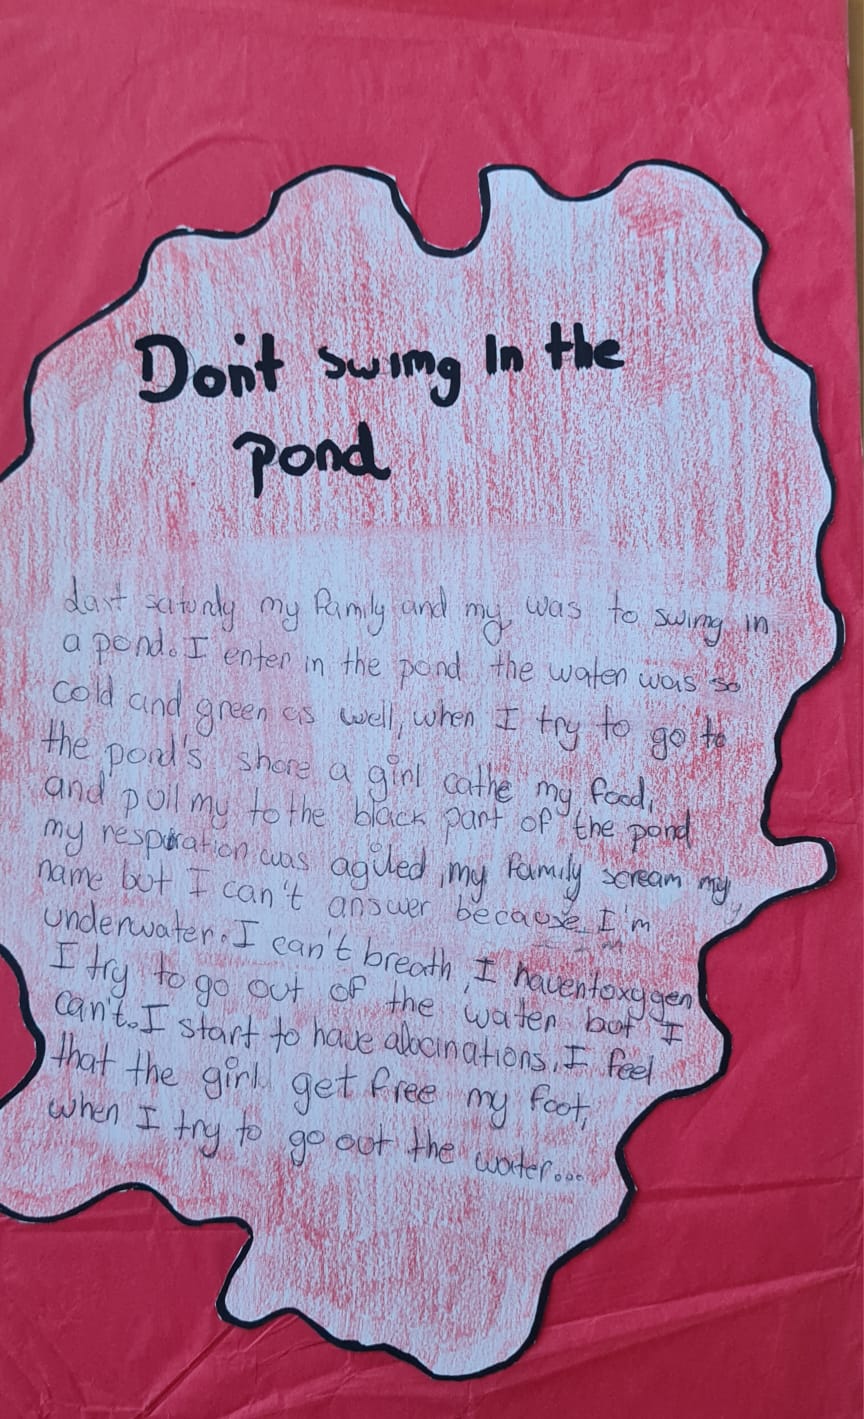 Don't swimg In the
pond
Last saturdy my family and my was to swimg in
a pond. I enter in the pond the water was so
cold and green as well, when I try to go to
the pond's shore a girl cathe my food,
and pull my to the black part of the pond
my respiration was agited, my family scream my
name but I can't answer because I'm
underwater. I can't breath, I haventoxygen
I try to go out of the water but I
can't. I start to have alocinations, I feel
that the girl get free my foot,
when I try to go out the water...